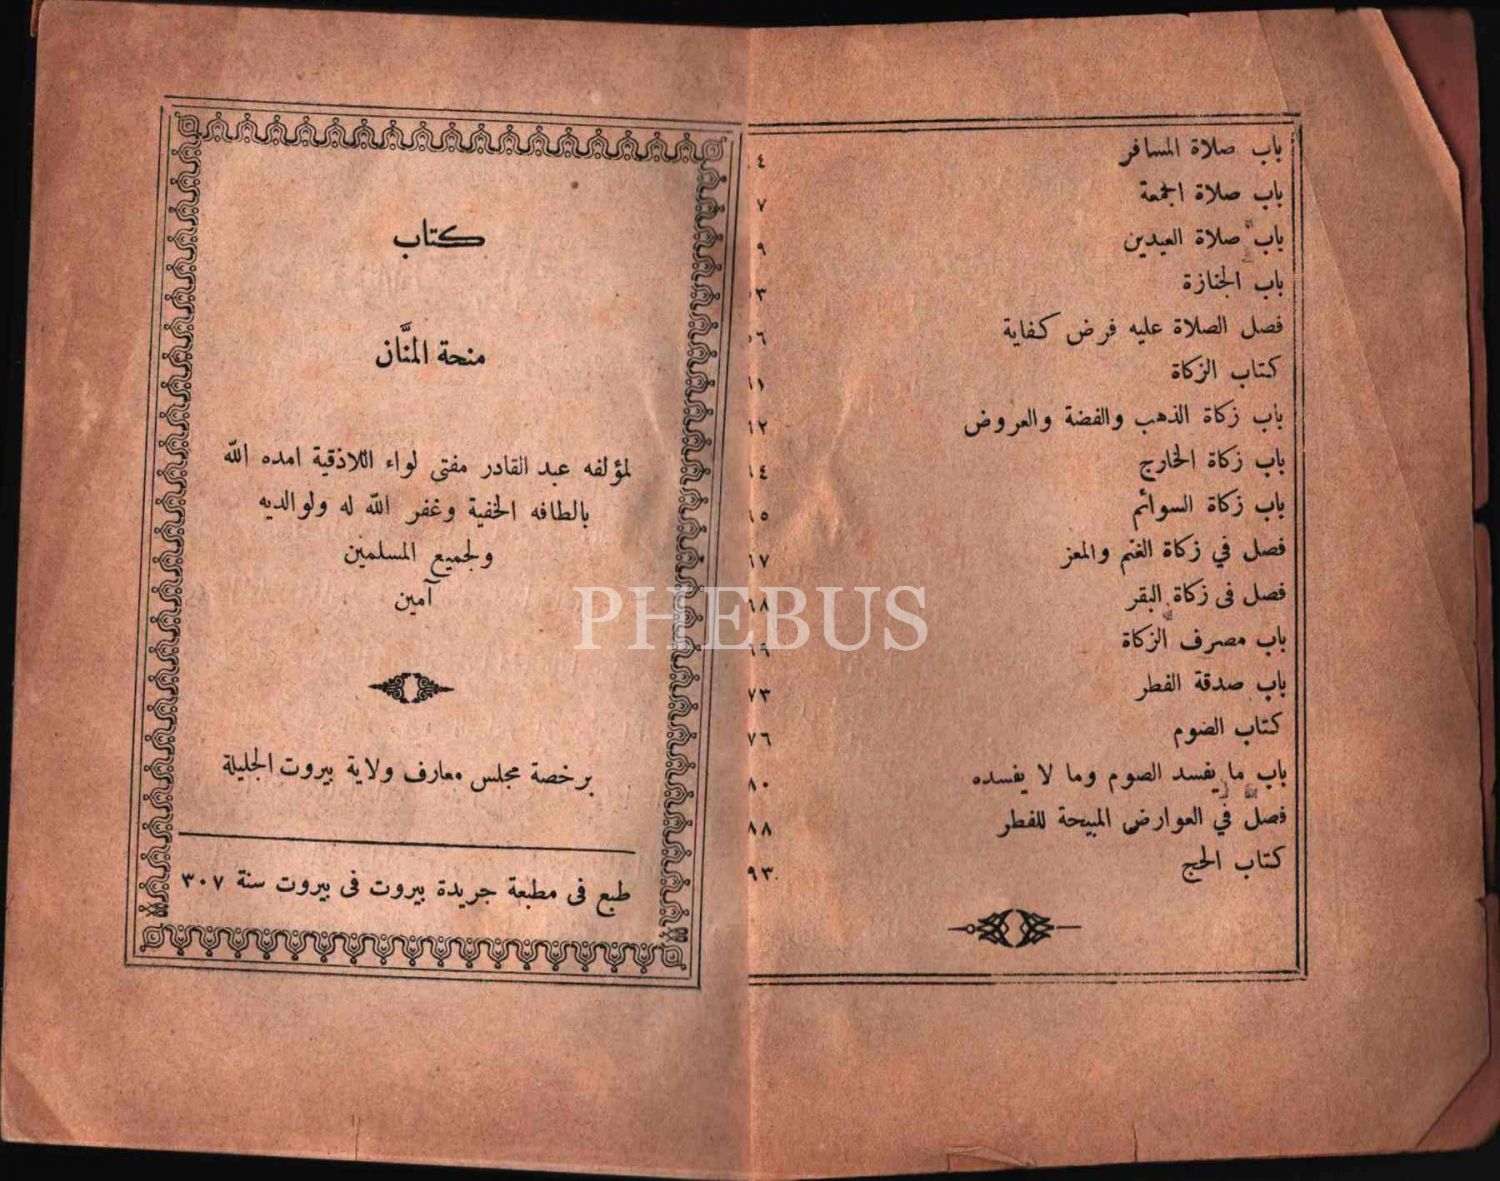 باب صلاة المسافر ٤
باب صلاة الجمعة ٧
باب صلاة العيدين ٩
باب الجنازة ٣
فصل الصلاة عليه فرض كفاية ٥٦
كتاب الزكاة ٦١
باب زكاة الذهب والفضة والعروض ٦٢
باب زكاة الخارج ٦٤
باب زكاة السوائم ٦٥
فصل في زكاة الغنم والمعز ٦٧
فصل فى زكاة البقر ٦٨
باب مصرف الزكاة ٦٩
باب صدقة الفطر ٧٣
كتاب الصوم ٧٦
باب ما يفسد الصوم وما لا يفسده ٨٠
فصل في العوارض المبيحة للفطر ٨٨
كتاب الحج ٩٣
كتاب
منحة المنَّان
لمؤلفه عبد القادر مفتى لواء اللاذقية امده الله
بالطافه الخفية وغفر الله له ولوالديه
ولجميع المسلمين
آمين
برخصة مجلس معارف ولاية بيروت الجليلة
طبع فى مطبعة جريدة بيروت فى بيروت سنة ٣٠٧
PHEBUS